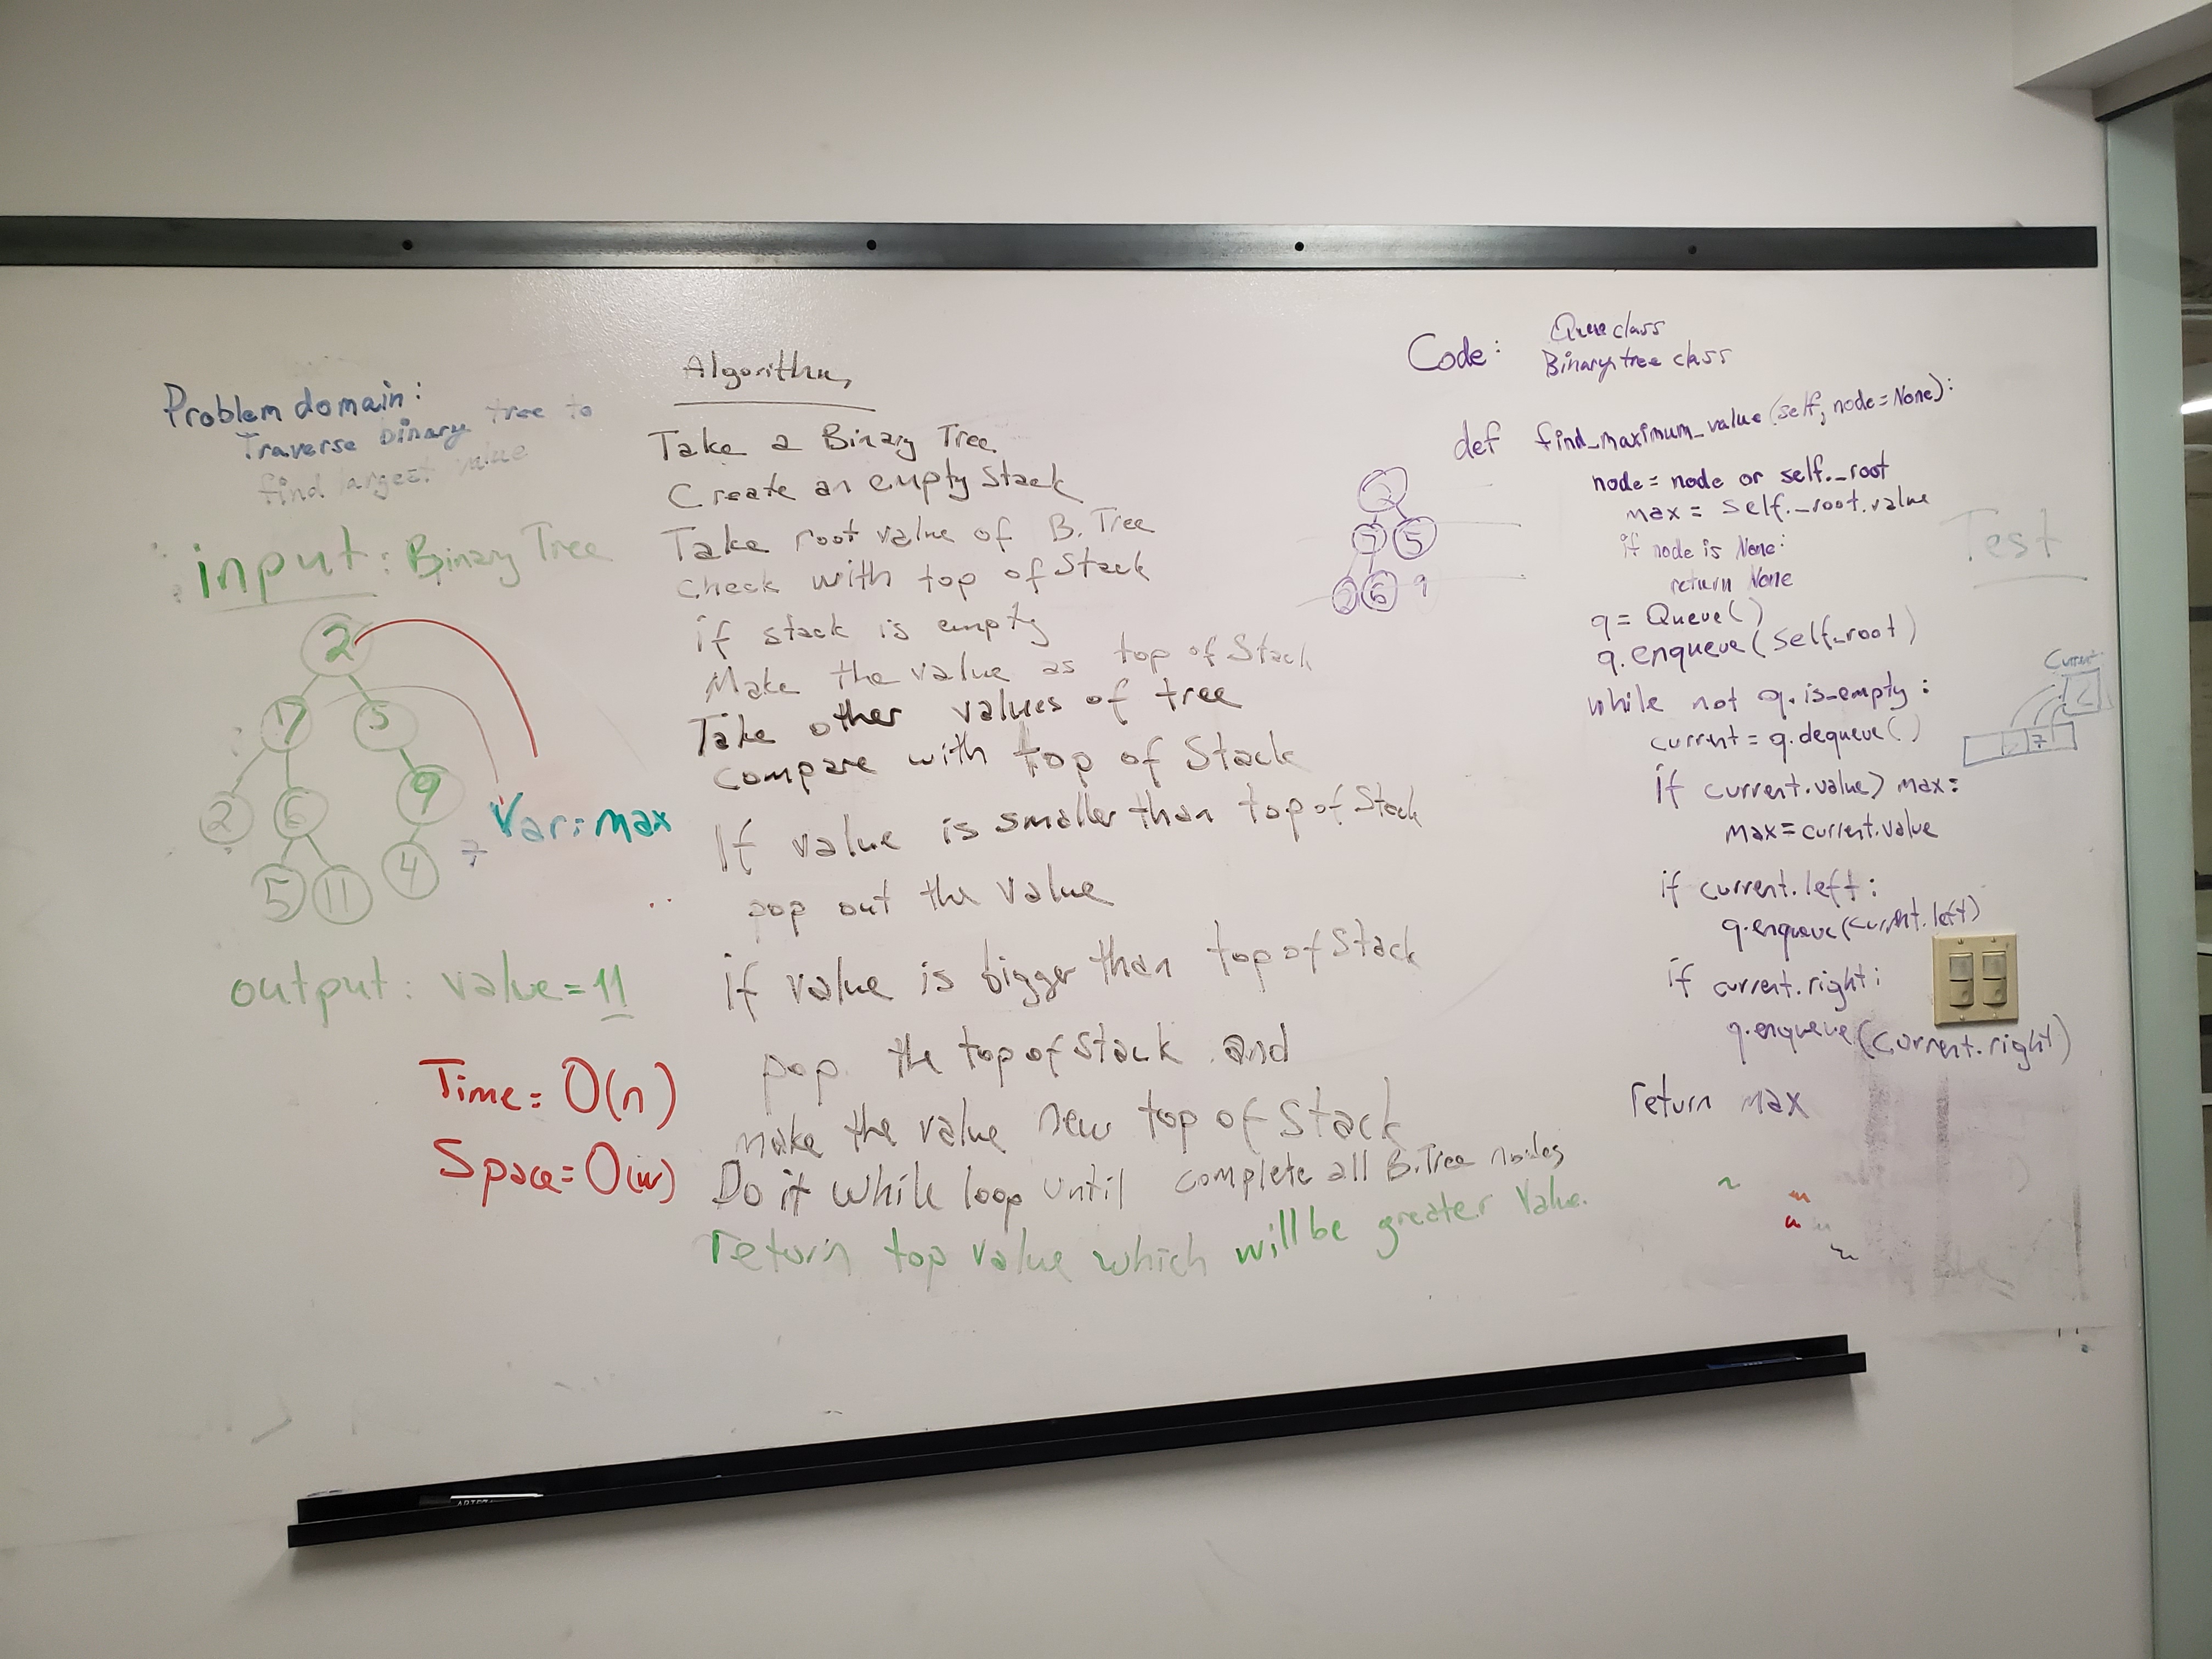 Problem domain:
Traverse binary tree to
find largest value
input: Binary Tree
2
7
5
2
6
9
5
11
4
7
Var: max
output: value = 11
Time = O(n)
Space = O(w)
Algorithm
Take a Binary Tree.
Create an empty Stack
Take root value of B.Tree
Check with top of Stack
if stack is empty
Make the value as top of Stack
Take other values of tree
Compare with top of Stack
If value is smaller than top of Stack
pop out the value
if value is bigger than top of Stack
pop the top of Stack and
make the value new top of Stack
Do it while loop until complete all B.Tree nodes
return top value which will be greater value.
Code:
Queue class
Binary tree class
def find_maximum_value (self, node=None):
node = node or self._root
max = self._root.value
if node is None:
return None
q = Queue()
q.enqueue(self._root)
while not q.is_empty:
current = q.dequeue()
if current.value > max:
max = current.value
if current.left:
q.enqueue(current.left)
if current.right:
q.enqueue(current.right)
return max
Test
Current
7
2